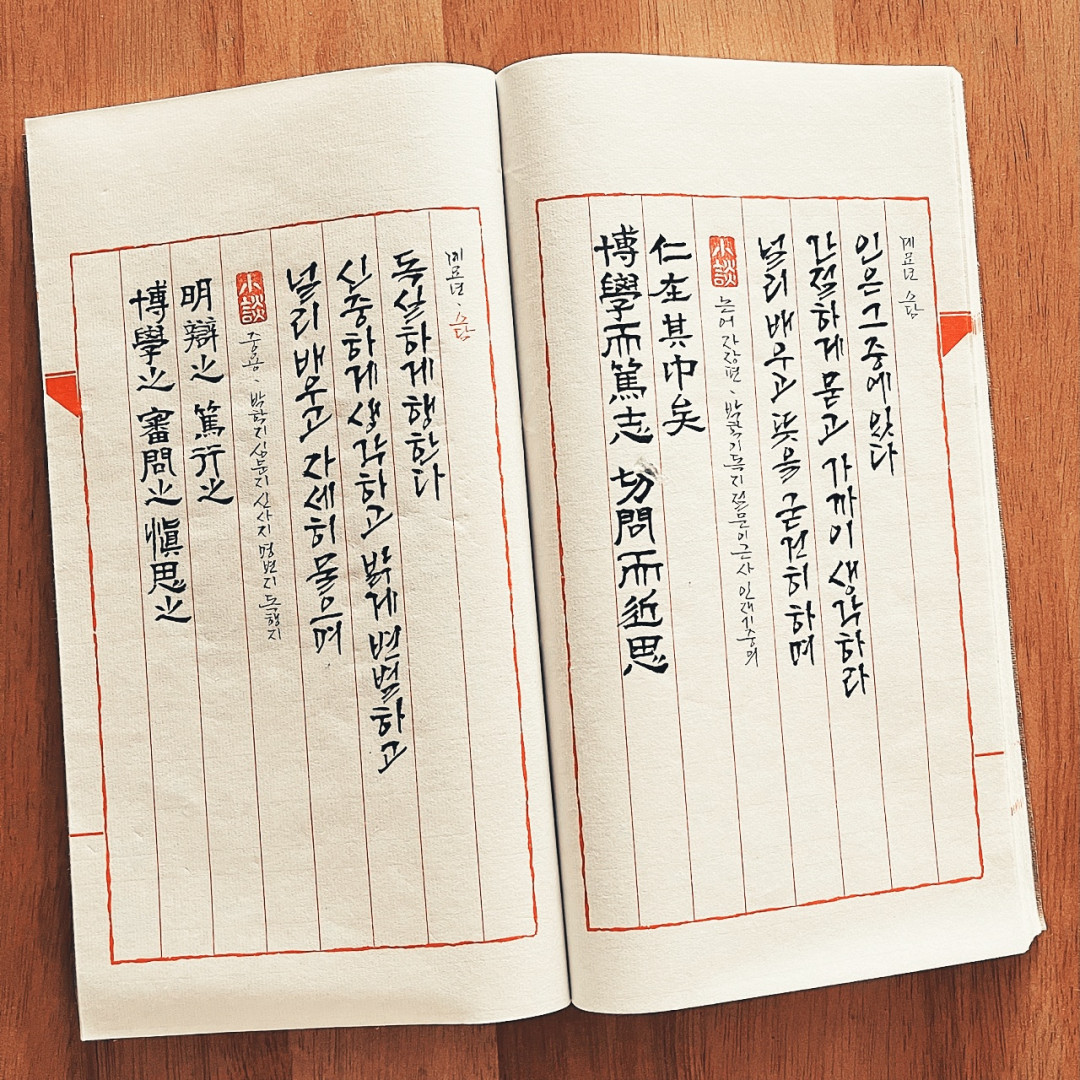 博學之 審問之 愼思之
明辯之 篤行之
小談
중용 · 박학지 심문지 신사지 명변지 독행지
널리 배우고 자세히 물으며
신중하게 생각하고 밝게 변별하고
독실하게 행한다
계묘년 · 소담
博學而篤志 切問而近思
仁在其中矣
小談
논어 자장편 · 박학기독지 절문이근사 인재기중의
널리 배우고 뜻을 굳건히 하며
간절하게 묻고 가까이 생각하라
인은 그 중에 있다
계묘년 소담